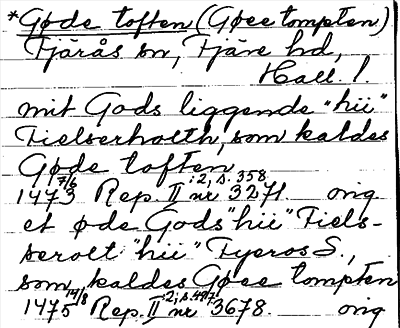 *Gøde toften (Gøee tompten)
Fjärås sn, Fjäre hd,
Hall. l.
mit Gods liggende "hii"
Tielserholth, som kaldes
Gøde toften
1473 7/6 Rep. II :2, s. 358 nr 3271. orig
et øde Gods "hii" Tiels-
serolt "hii" Fyeros S.,
som kaldes Gøee tompten
1475 14/8 Rep. II :2; s. 497 nr 3678. orig